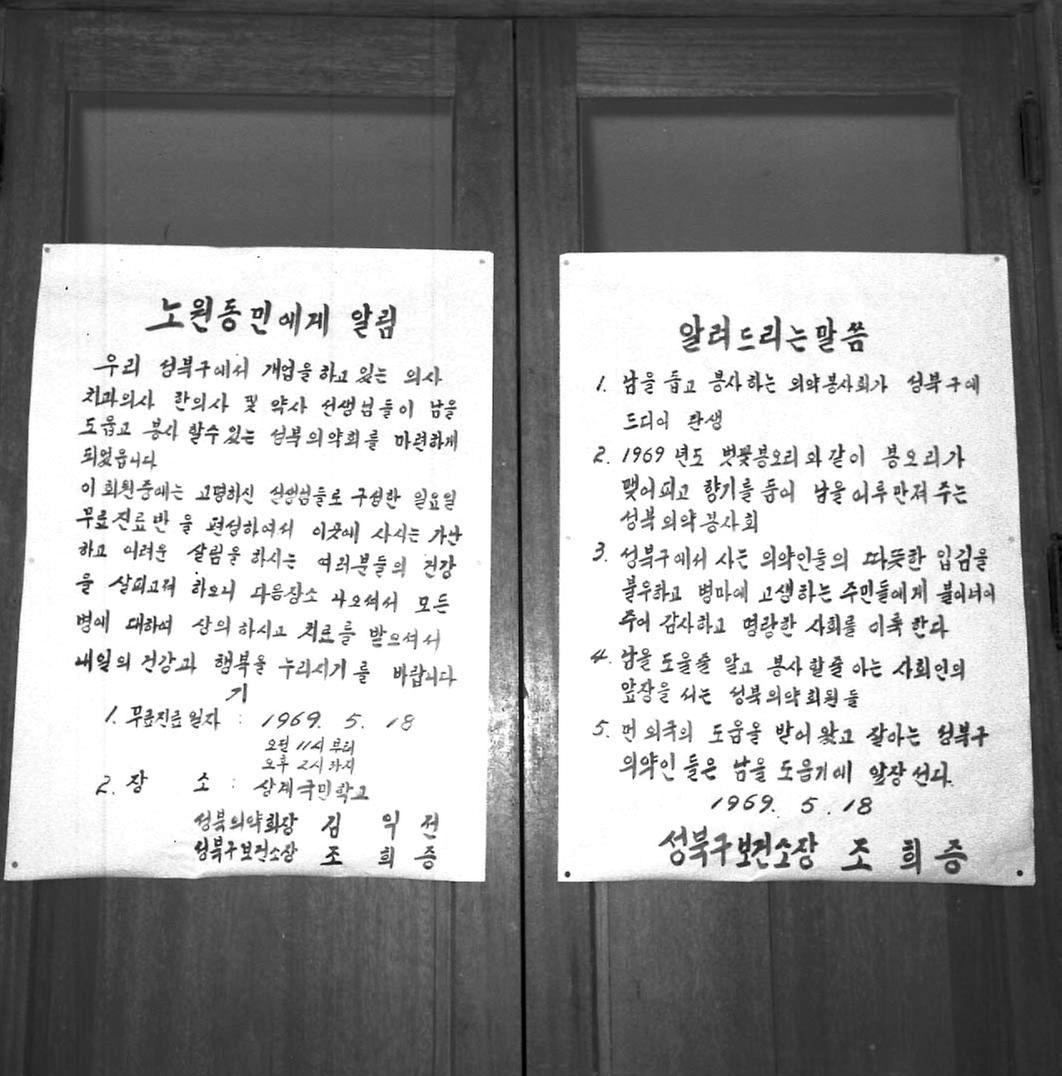 노원동민에게 알림
우리 성북구에서 개업을하고 있는 의사
치과의사 한의사 및 약사 선생님들이 남을
도웁고 봉사 할수있는 성북의약회를 마련하게
되었읍니다
이 회원중에는 고명하신 선생님들로 구성한 일요일
무료진료반을 편성하여서 이곳에 사시는 가난
하고 어려운 살림을 하시는 여러분들의 건강
을 살피고져 하오니 다음장소 나오셔서 모든
병에 대하여 상의하시고 치료를 받으셔서
내일의 건강과 행복을 누리시기를 바랍니다
기
1. 무료진료일자 : 1969. 5. 18
오전 11시 부터
오후 2시 까지
2. 장 소 : 상계국민학교
성북의약회장 김 익 전
성북구보건소장 조 희 증
알려드리는말씀
1. 남을 돕고 봉사하는 의약봉사회가 성북구에
드디어 탄생
2. 1969년도 벗꽃봉오리와같이 봉오리가
맺어피고 향기를 품어 남을 어루만져 주는
성북의약봉사회
3. 성북구에서 사는 의약인들의 따뜻한 입김을
불우하고 병마에 고생하는 주민들에게 불어너어
주어 감사하고 명랑한 사회를 이룩 한다
4. 남을 도울줄 알고 봉사할줄 아는 사회인의
앞장을 서는 성북의약회원들
5. 먼 외국의 도움을 받어왔고 잘아는 성북구
의약인 들은 남을 도웁기에 앞장선다.
1969. 5. 18
성북구보건소장 조 희 증